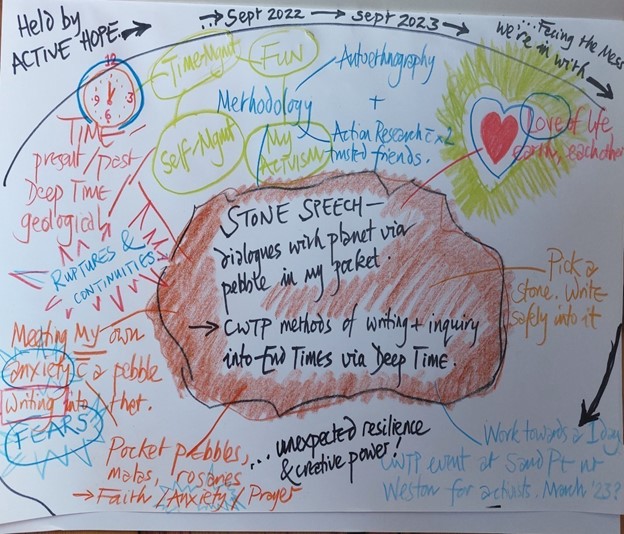 Held by
ACTIVE HOPE...
→ Sept 2022 → Sept 2023 →
...Facing the Mess
we're in with
12
3
6
9
Time Mgmt
FUN
Self-Mgmt
My
Activism
Methodology
Autoethnography
+
Action Research c̄ x2
trusted friends.
Love of life
earth, each other
TIME
present/past
Deep Time
geological
RUPTURES &
CONTINUITIES
STONE SPEECH —
dialogues with planet via
pebble in my pocket.
→ CWTP methods of writing + inquiry
into End Times via Deep Time.
Pick a
stone. Write
safely into it
Meeting My own
anxiety c̄ a pebble
writing into that.
FEARS
Pocket pebbles,
malas, rosaries
→ Faith / Anxiety / Prayer
... unexpected resilience
& creative power!
Work towards a 1 day
CWTP event at Sand Pt nr
Weston for activists. March '23?